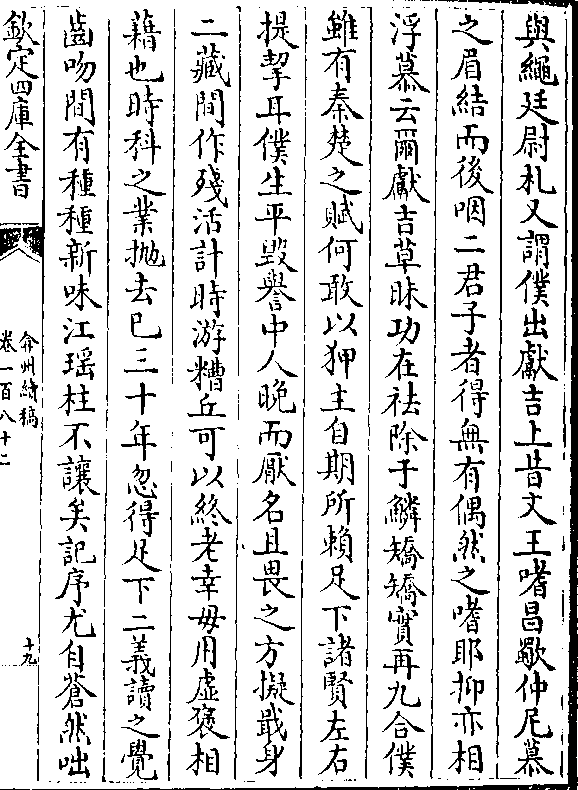 與繩廷尉札又謂僕出獻吉上昔文王嗜昌歜仲尼慕
之眉結而後咽二君子者得無有偶然之嗜耶抑亦相
浮慕云爾獻吉草昧功在祛除于鱗矯矯實再九合僕
雖有秦楚之賦何敢以狎主自期所賴足下諸賢左右
提挈耳僕生平毀譽中人晚而厭名且畏之方擬戢身
二藏間作殘活計時游糟丘可以終老幸毋用虛褒相
藉也時科之業拋去已三十年忽得足下二義讀之覺
齒吻間有種種新味江瑤柱不讓矣記序尤自蒼然咄
欽定四庫全書
弇州續稿
卷一百八十二
十九